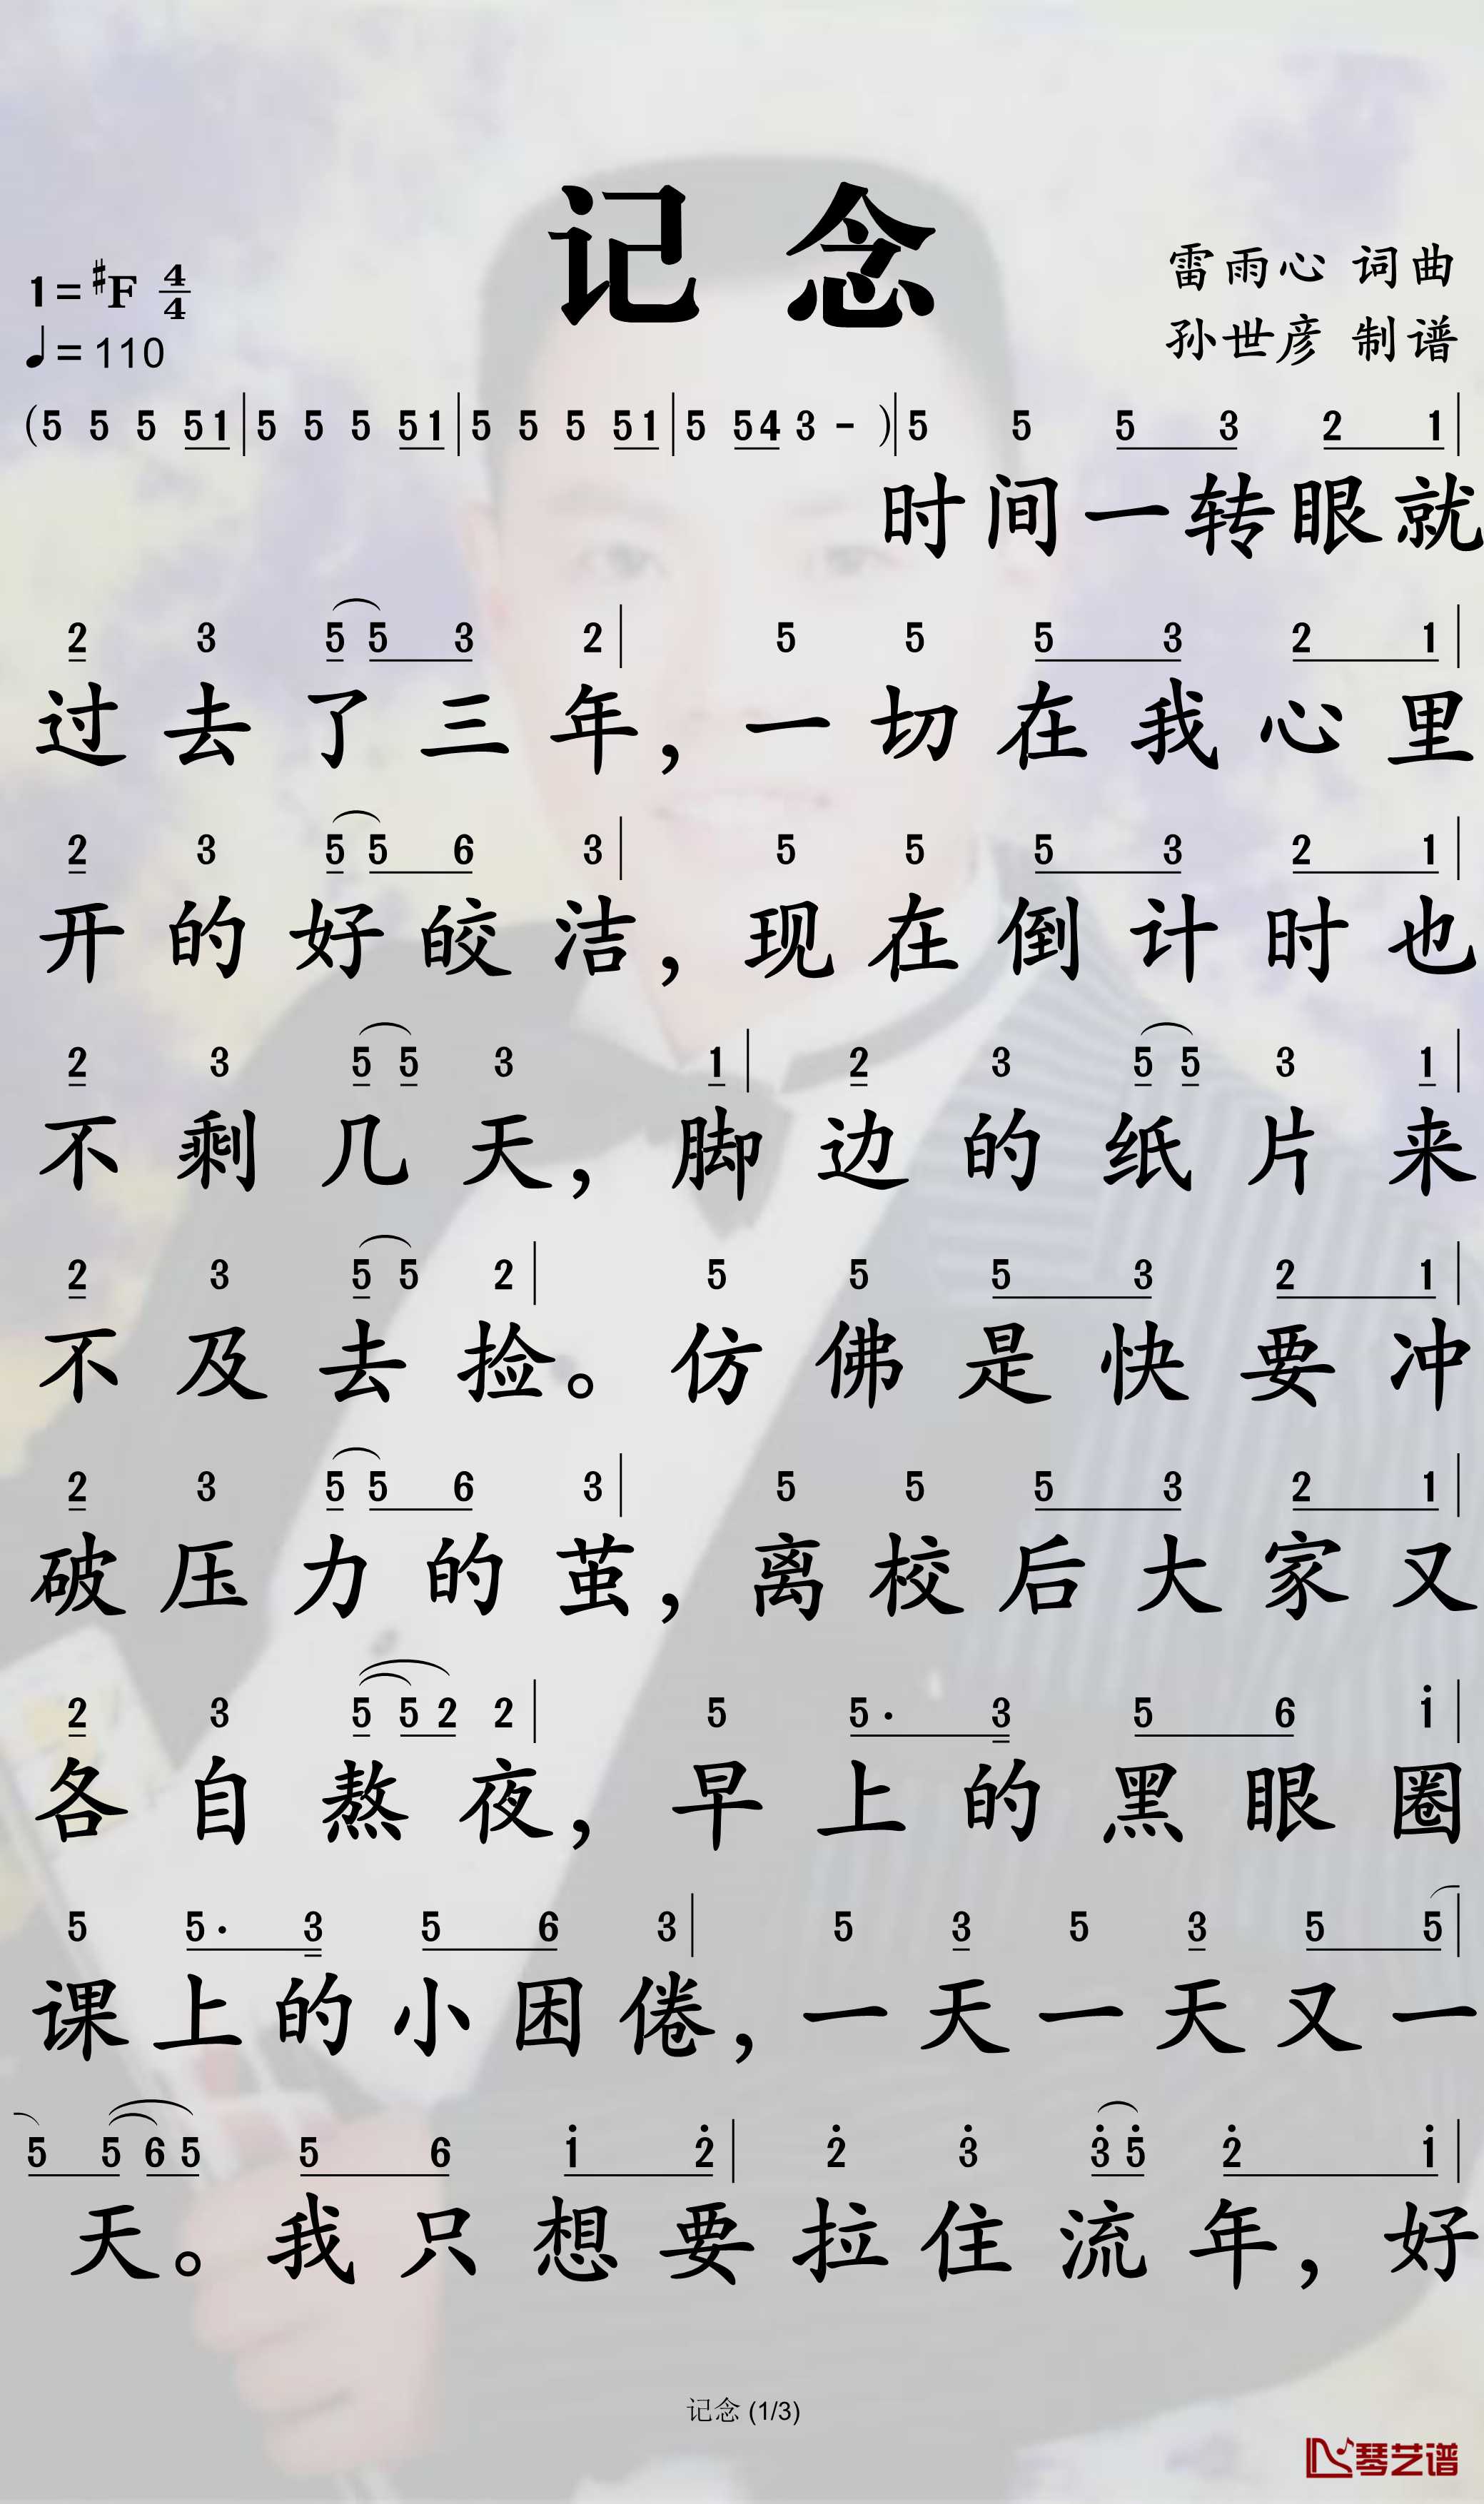 记 念
1=#F 4/4
♩=110
雷雨心 词曲
孙世彦 制谱
(5 5 5 51|5 5 5 51|5 5 5 51|5 54 3 - )|5 5 5 3 2 1|
时间一转眼就
2 3 5 5 3 2| 5 5 5 3 2 1|
过去了三年，一切在我心里
2 3 5 5 6 3| 5 5 5 3 2 1|
开的好皎洁，现在倒计时也
2 3 5 5 3 1| 2 3 5 5 3 1|
不剩几天，脚边的纸片来
2 3 5 5 2| 5 5 5 3 2 1|
不及去捡。仿佛是快要冲
2 3 5 5 6 3| 5 5 5 3 2 1|
破压力的茧，离校后大家又
2 3 5 5 2 2| 5 5· 3 5 6 i|
各自熬夜，早上的黑眼圈
5 5· 3 5 6 3| 5 3 5 3 5 5|
课上的小困倦，一天一天又一
5 5 6 5 5 6 1̇ 2̇| 2̇ 3̇ 3̇ 5̇ 2̇ 1̇|
天。我只想要拉住流年，好
记念 (1/3)
琴艺谱